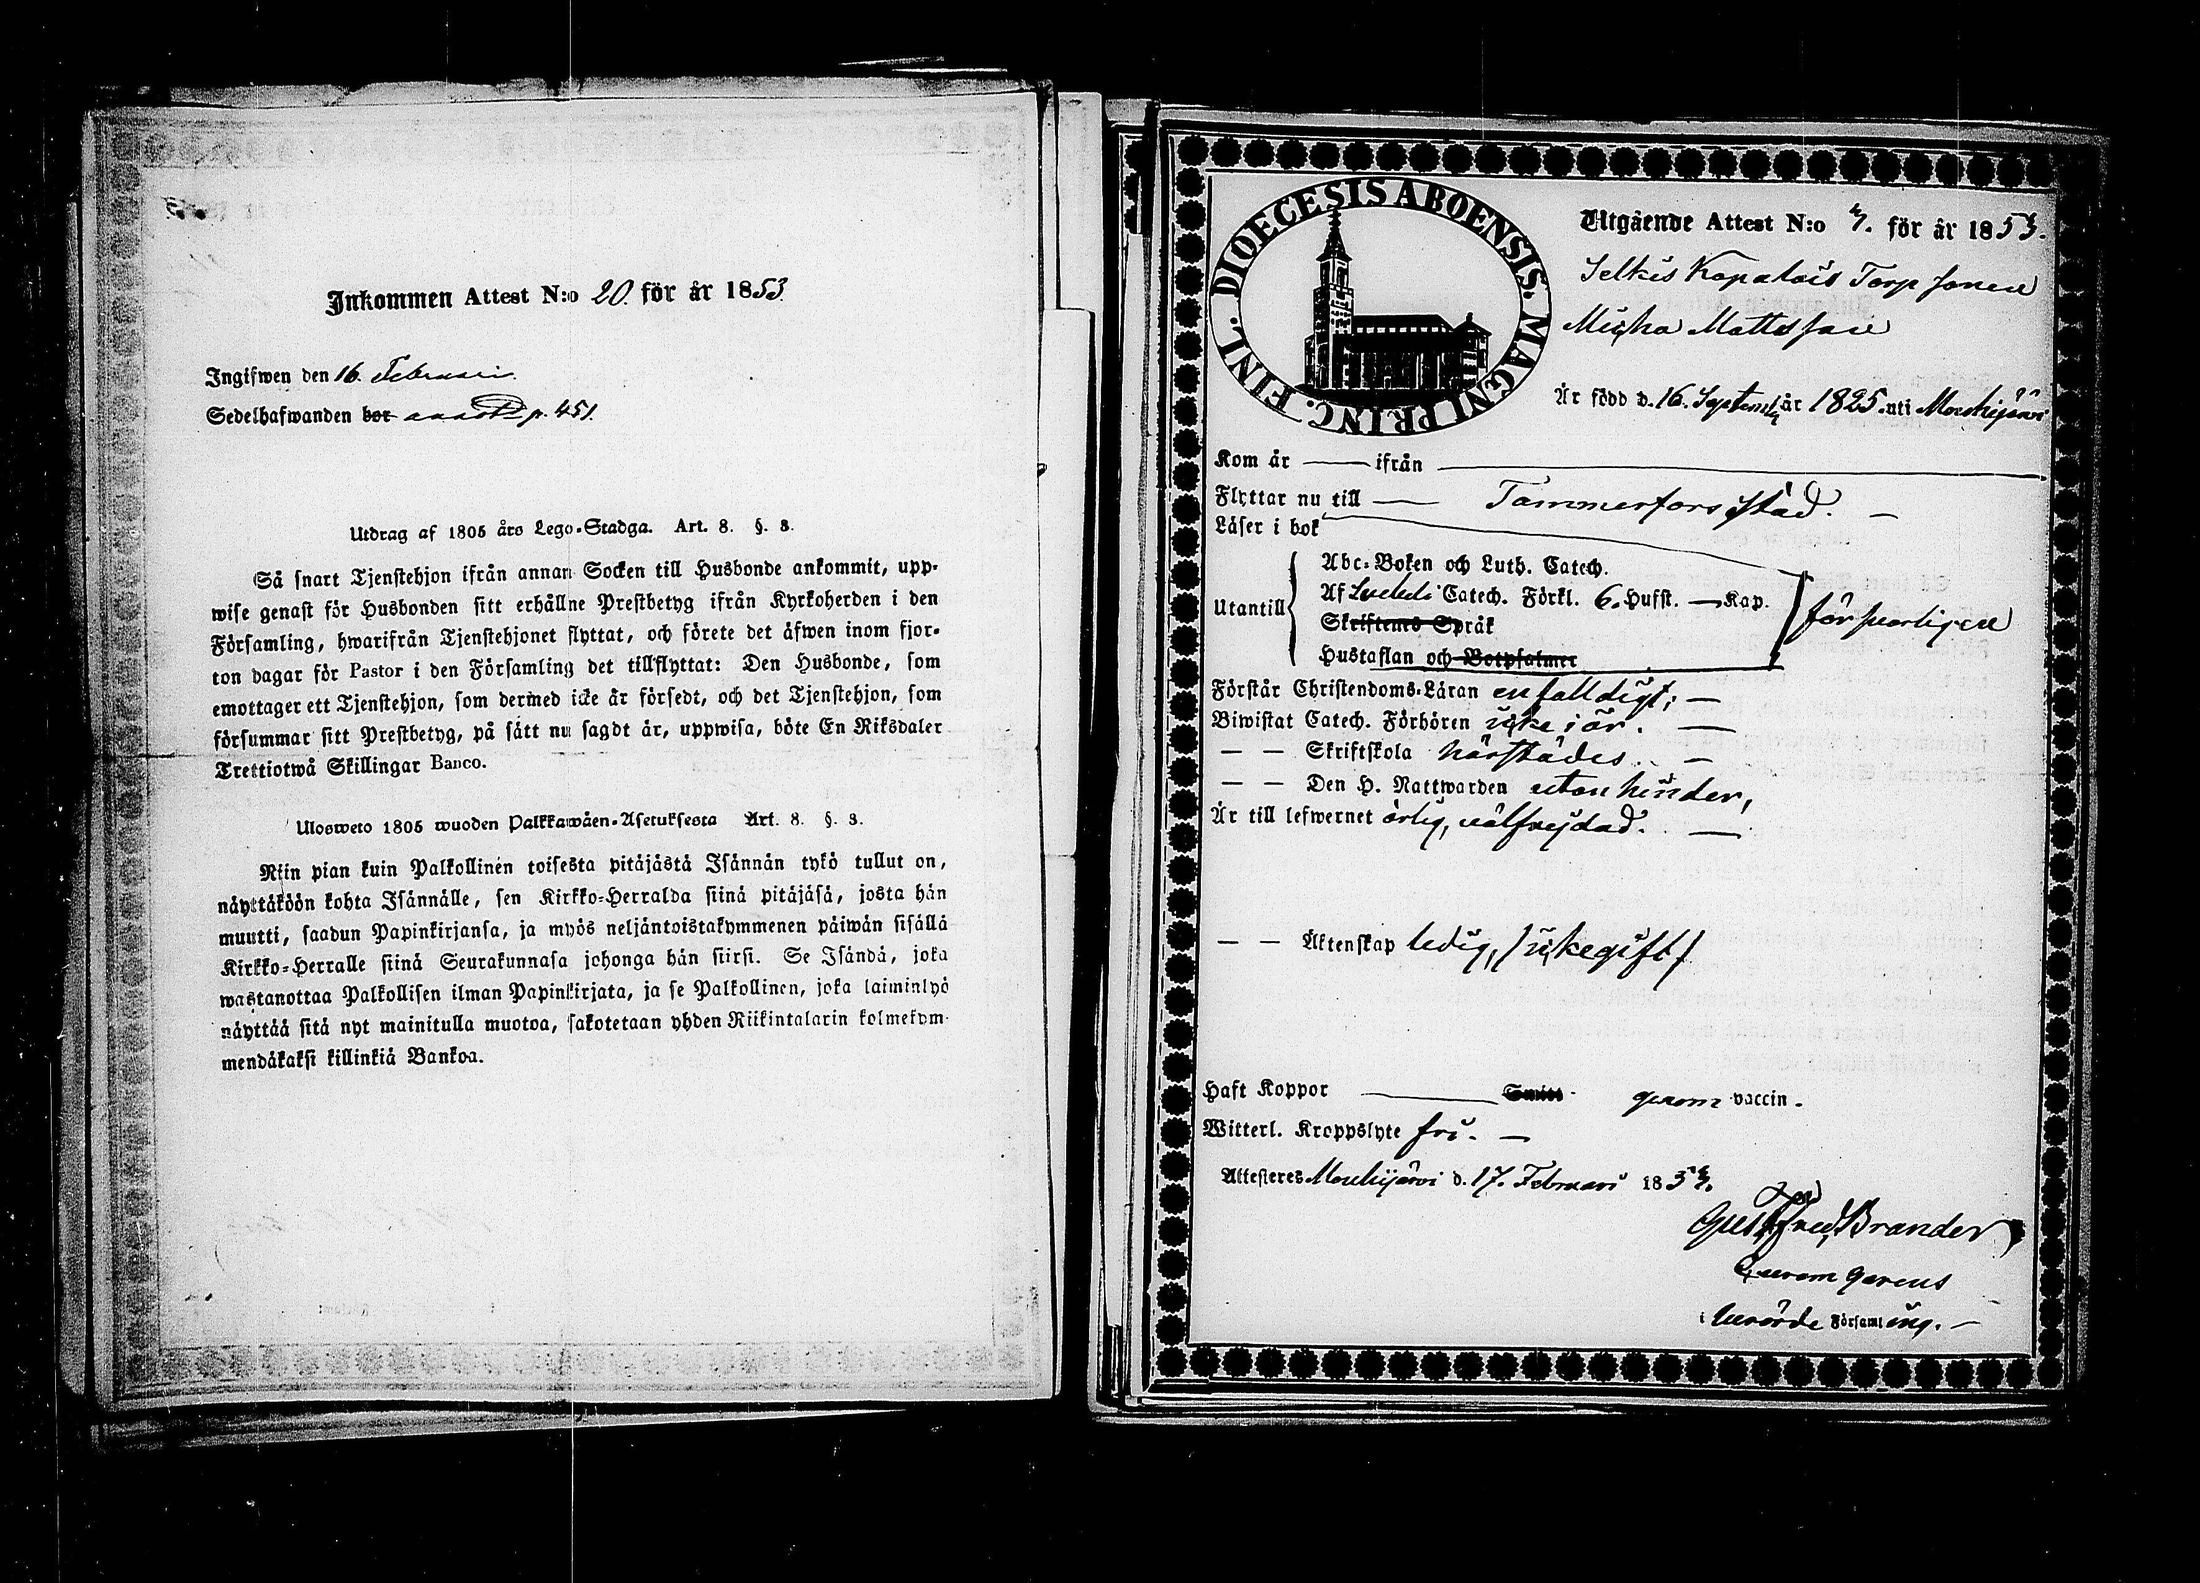 Inkommen Attest N:o 20. för år 1853
Ingifwen den 16. Februari.
Sedelhafwanden bor p. 451.
Utdrag af 1805 års Lego-Stadga. Art. 8. §. 3.
Så snart Tjenstehjon ifrån annan Socken till Husbonde ankommit, upp-
wise genast för Husbonden sitt erhållne Prestbetyg ifrån Kyrkoherden i den
Församling, hwarifrån Tjenstehjonet flyttat, och förete det äfwen inom fjor-
ton dagar för Pastor i den Församling det tillflyttat: Den Husbonde, som
emottager ett Tjenstehjon, som dermed icke är försedt, och det Tjenstehjon, som
försummar sitt Prestbetyg, på sätt nu sagdt är, uppwisa, böte En Riksdaler
Trettiotwå Skillingar Banco.
Ulosweto 1805 wuoden Palkkawäen-Asetuksesta Art. 8. §. 3.
Niin pian kuin Palkollinen toisesta pitäjästä Isännän tykö tullut on,
näyttäköön kohta Isännälle, sen Kirkko-Herralda siinä pitäjäsä, josta hän
muutti, saadun Papinkirjansa, ja myös neljäntoistakymmenen päiwän sisällä
Kirkko-Herralle siinä Seurakunnasa johonga hän siirsi. Se Isändä, joka
wastanottaa Palkollisen ilman Papinkirjata, ja se Palkollinen, joka laiminlyö
näyttää sitä nyt mainitulla muotoa, sakotetaan yhden Riikintalarin kolmekym-
mendäkaksi killinkiä Bankoa.
DIOECESIS ABOENSIS. MAGNI PRINC. FINL.
Utgående Attest N:o 7. för år 1853.
Selkis Kapalois Torp sonen
Micha Mattsson
Är född d. 16. Septemb. år 1825. uti Mouhijärvi
Kom år — ifrån
Flyttar nu till — Tammerfors stad. —
Läser i bok
Abc-Boken och Luth. Catech.
Utantill Af Svebeli Catech. Förkl. 6. Hufst. — Kap. försvarligen
Skriftens Språk
Hustaflan och Botpsalmer
Förstår Christendoms-Läran enfalldigt; —
Biwistat Catech. Förhören icke i år. —
— — Skriftskola härstädes. —
— — Den H. Nattwarden utan hinder,
Är till lefwernet ärlig, välfrejdad. —
— — Äktenskap ledig, /icke gift/
Haft Koppor — Smitt genom vaccin.
Witterl. Kroppslyte fri. —
Attesteras Mouhijärvi d. 17. Februari 1853.
Gust. Fred. Brander
Curam gerens
i berörde Församling. —